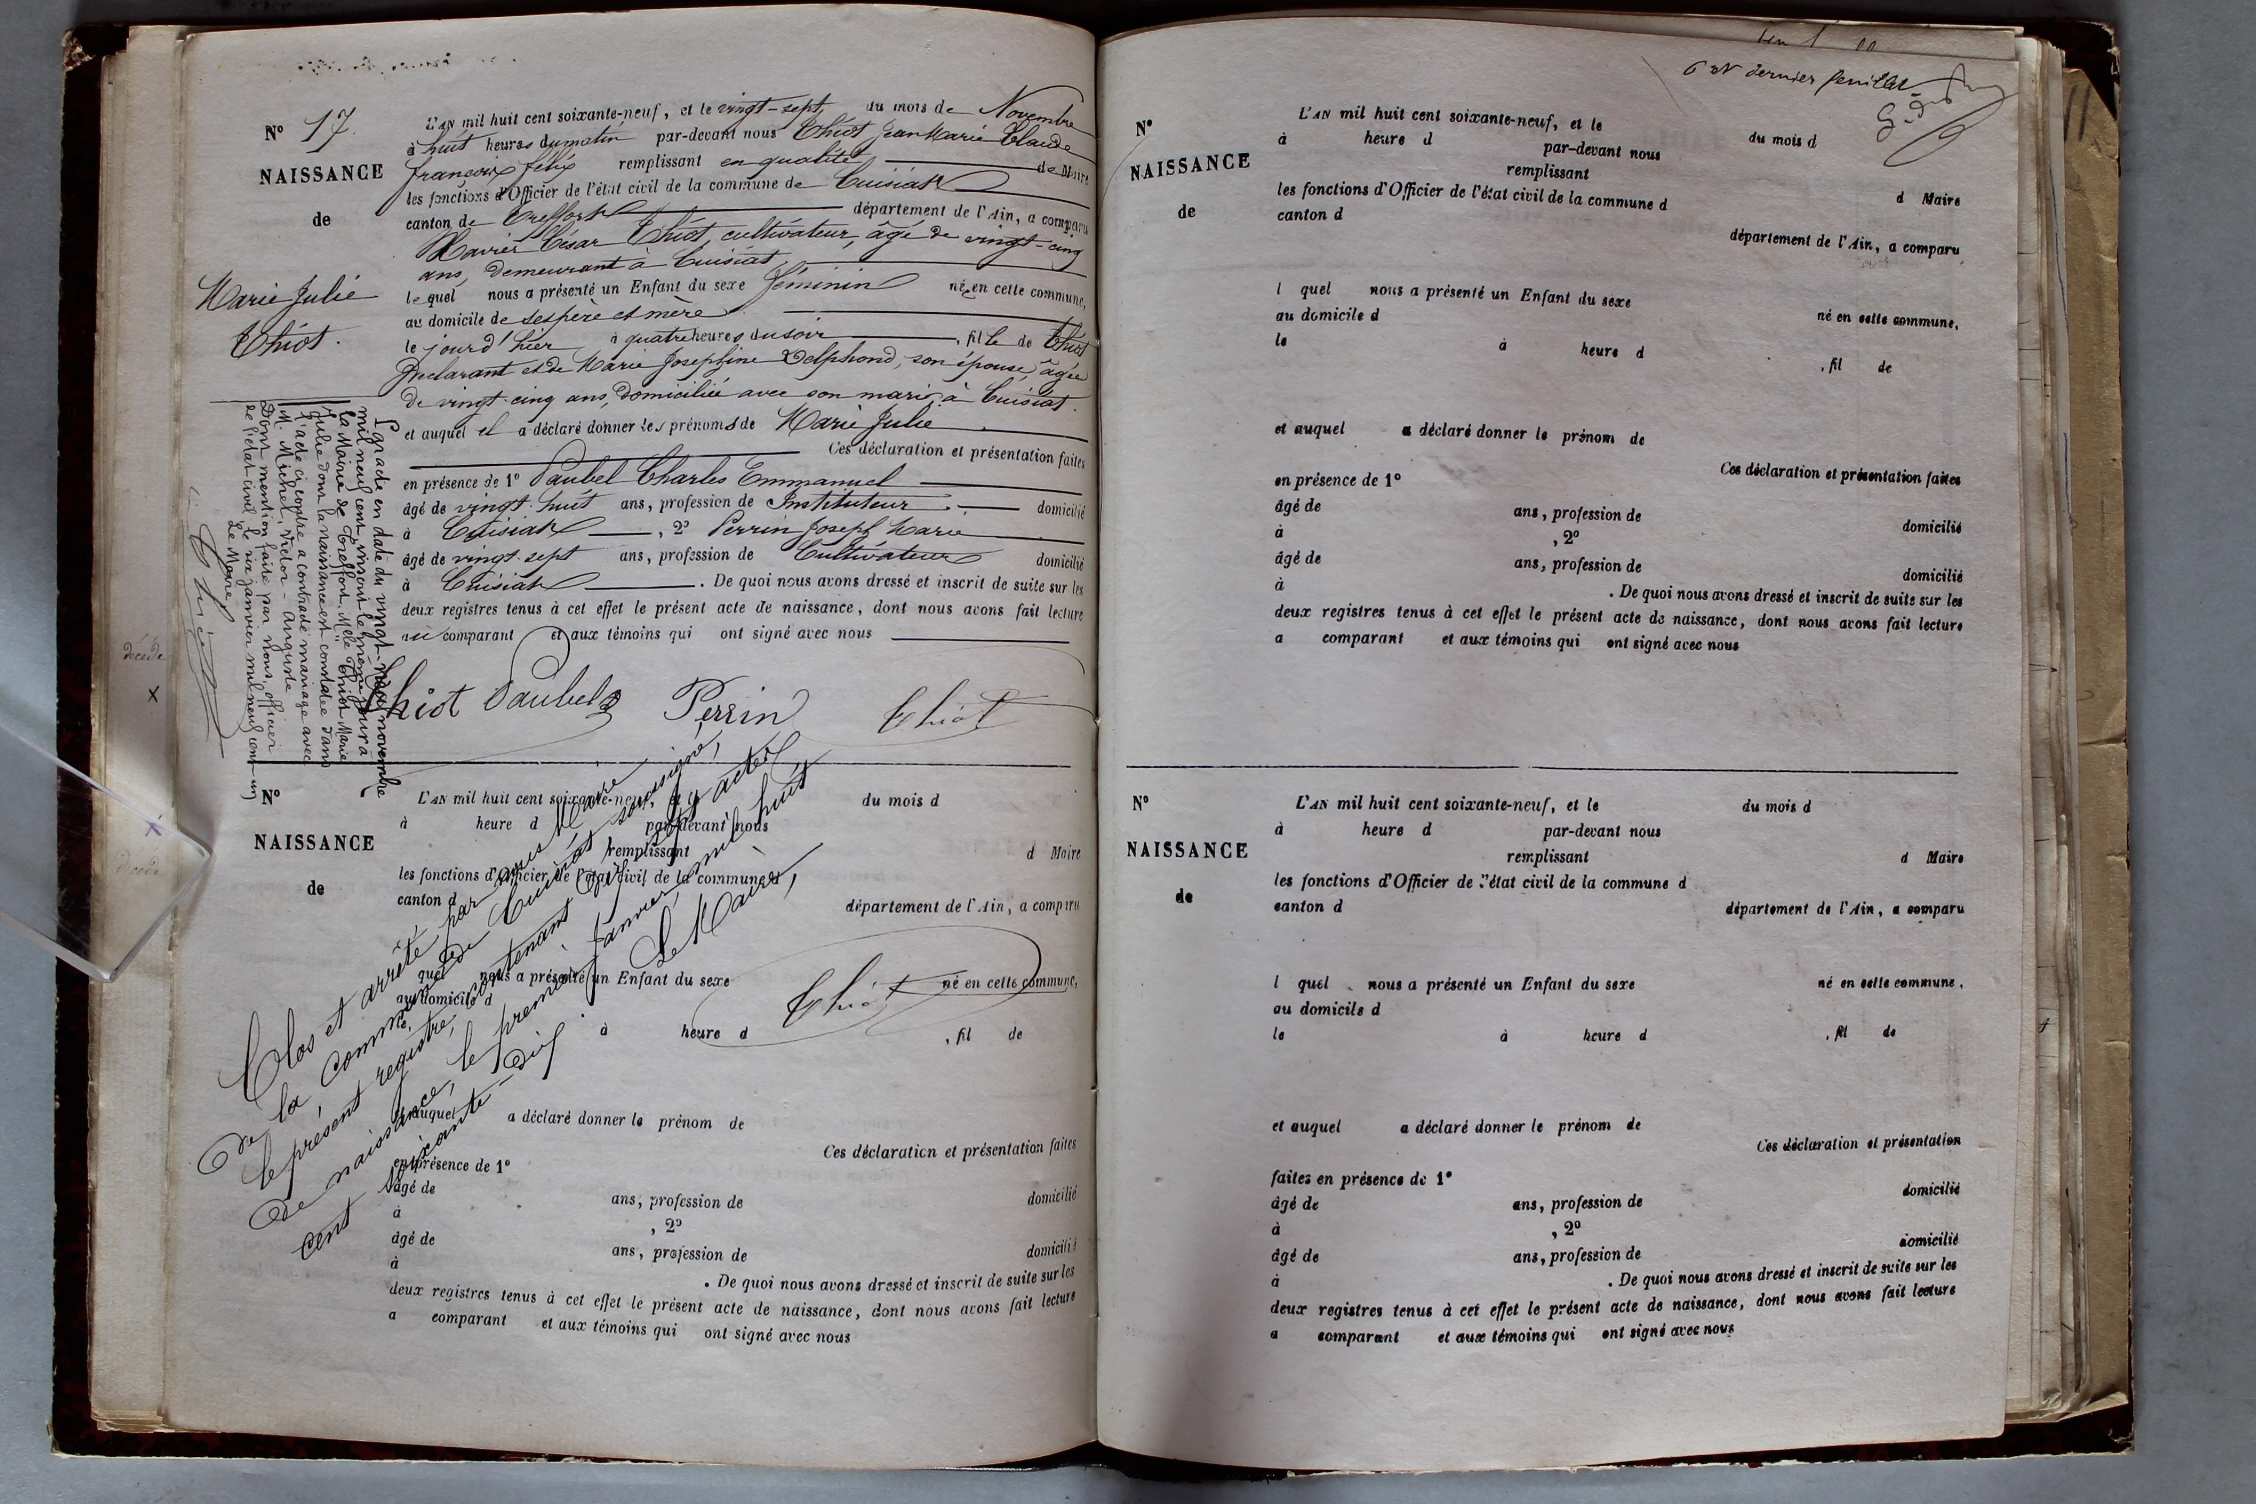 N° 17.
NAISSANCE
de
Marie Julie
Thiot.
L'AN mil huit cent soixante-neuf, et le vingt-sept du mois de Novembre
à huit heures du matin par-devant nous Thiot Jean Marie Claude
françois félix remplissant en qualité de Maire
les fonctions d'Officier de l'état civil de la commune de Cuisiat
canton de Treffort département de l'Ain, a comparu
Xavier César Thiot, cultivateur, âgé de vingt-cinq
ans, demeurant à Cuisiat,
lequel nous a présenté un Enfant du sexe féminin né en cette commune,
au domicile de ses père et mère
le jourd'hier à quatre heures du soir, fille de Thiot
Déclarant et de Marie Josephine Delphond, son épouse, âgée
de vingt-cinq ans, domiciliée avec son mari, à Cuisiat.
et auquel il a déclaré donner les prénoms de Marie Julie.
Ces déclaration et présentation faites
en présence de 1° Paubel Charles Emmanuel
âgé de vingt-huit ans, profession de Instituteur domicilié
à Cuisiat, 2° Perrin Joseph Marie
âgé de vingt-sept ans, profession de Cultivateur domicilié
à Cuisiat. De quoi nous avons dressé et inscrit de suite sur les
deux registres tenus à cet effet le présent acte de naissance, dont nous avons fait lecture
au comparant et aux témoins qui ont signé avec nous
Thiot Paubel Perrin Thiot
en date du vingt- novembre
mil neuf cent, inscrit le même jour à
la Mairie de Treffort, Melle Thiot Marie
Julie dont la naissance est constatée dans
l'acte ci-contre a contracté mariage avec
M. Michel, Victor-Auguste
Dont mention faite par nous, officier
de l'état civil le six janvier mil neuf cent un
Le Maire
décédé
x
N°
NAISSANCE
de
L'AN mil huit cent soixante-neuf, et le du mois d
à heure d par-devant nous
remplissant d Maire
les fonctions d'Officier de l'état civil de la commune d
canton d département de l'Ain, a comparu
l quel nous a présenté un Enfant du sexe né en cette commune,
au domicile d
le à heure d , fil de
et auquel a déclaré donner le prénom de
Ces déclaration et présentation faites
en présence de 1°
âgé de ans, profession de domicilié
à , 2°
âgé de ans, profession de domicilié
à . De quoi nous avons dressé et inscrit de suite sur les
deux registres tenus à cet effet le présent acte de naissance, dont nous avons fait lecture
a comparant et aux témoins qui ont signé avec nous
Clos et arrêté par nous Maire
de la commune de Cuisiat soussigné,
le présent registre, contenant dix-sept actes
de naissance, le premier janvier, mil huit
cent soixante-dix.
Le Maire,
Thiot
6 et dernier feuillet
N°
NAISSANCE
de
L'AN mil huit cent soixante-neuf, et le du mois d
à heure d par-devant nous
remplissant d Maire
les fonctions d'Officier de l'état civil de la commune d
canton d département de l'Ain, a comparu
l quel nous a présenté un Enfant du sexe né en cette commune,
au domicile d
le à heure d , fil de
et auquel a déclaré donner le prénom de
Ces déclaration et présentation faites
en présence de 1°
âgé de ans, profession de domicilié
à , 2°
âgé de ans, profession de domicilié
à . De quoi nous avons dressé et inscrit de suite sur les
deux registres tenus à cet effet le présent acte de naissance, dont nous avons fait lecture
a comparant et aux témoins qui ont signé avec nous
N°
NAISSANCE
de
L'AN mil huit cent soixante-neuf, et le du mois d
à heure d par-devant nous
remplissant d Maire
les fonctions d'Officier de l'état civil de la commune d
canton d département de l'Ain, a comparu
l quel nous a présenté un Enfant du sexe né en cette commune,
au domicile d
le à heure d , fil de
et auquel a déclaré donner le prénom de
Ces déclaration et présentation
faites en présence de 1°
âgé de ans, profession de domicilié
à , 2°
âgé de ans, profession de domicilié
à . De quoi nous avons dressé et inscrit de suite sur les
deux registres tenus à cet effet le présent acte de naissance, dont nous avons fait lecture
a comparant et aux témoins qui ont signé avec nous